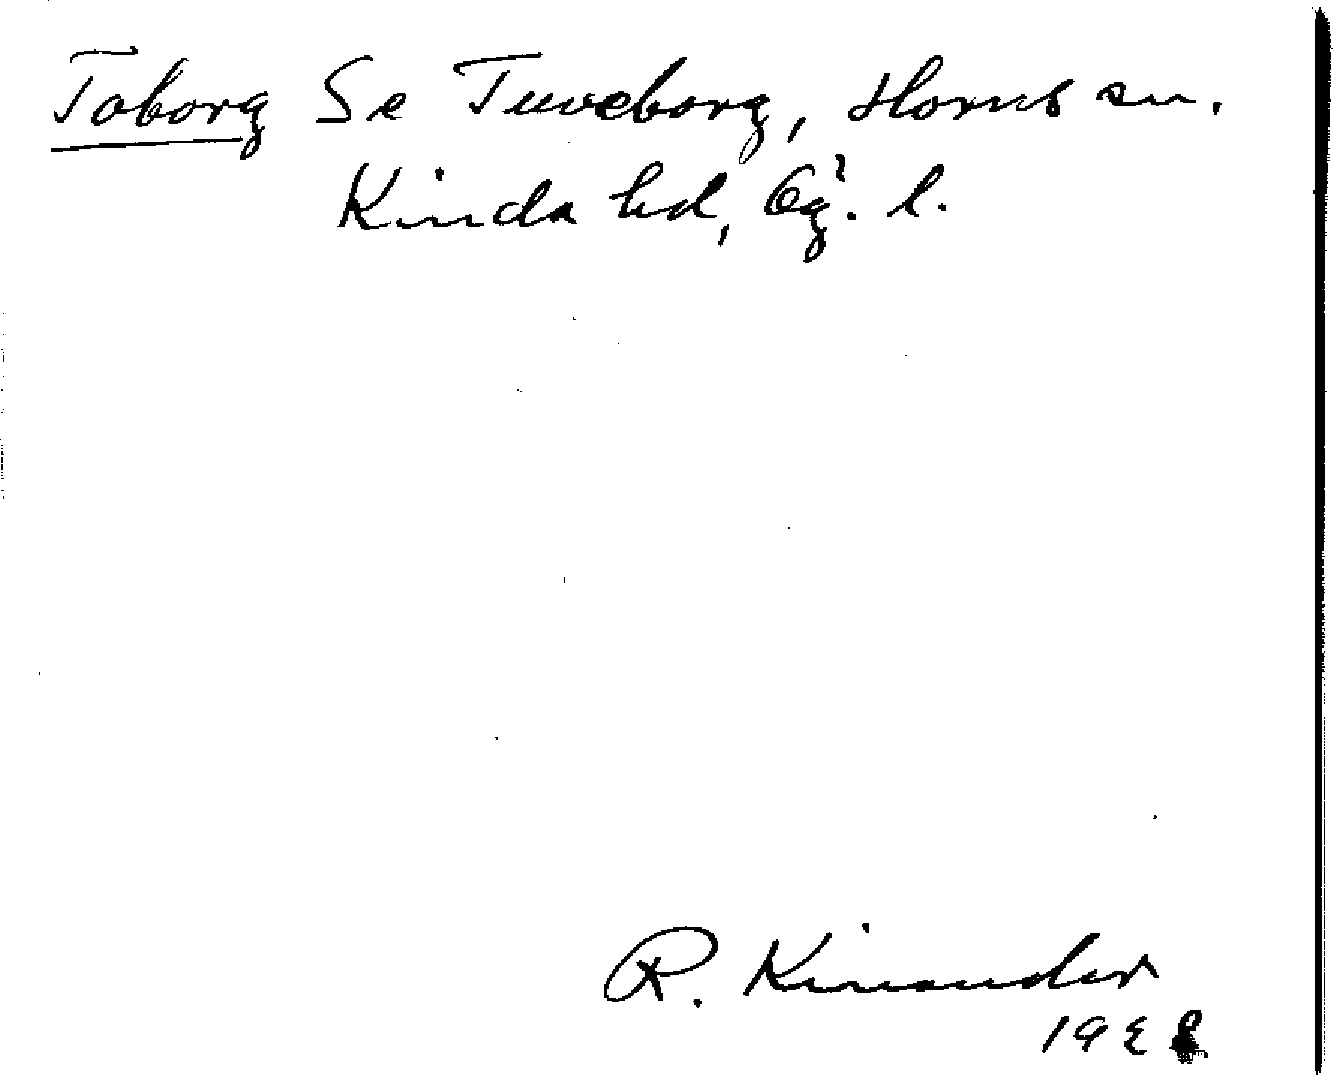 Toborg Se Tuveborg, Horns sn.
Kinda hd, Ög. l.
R. Kinander